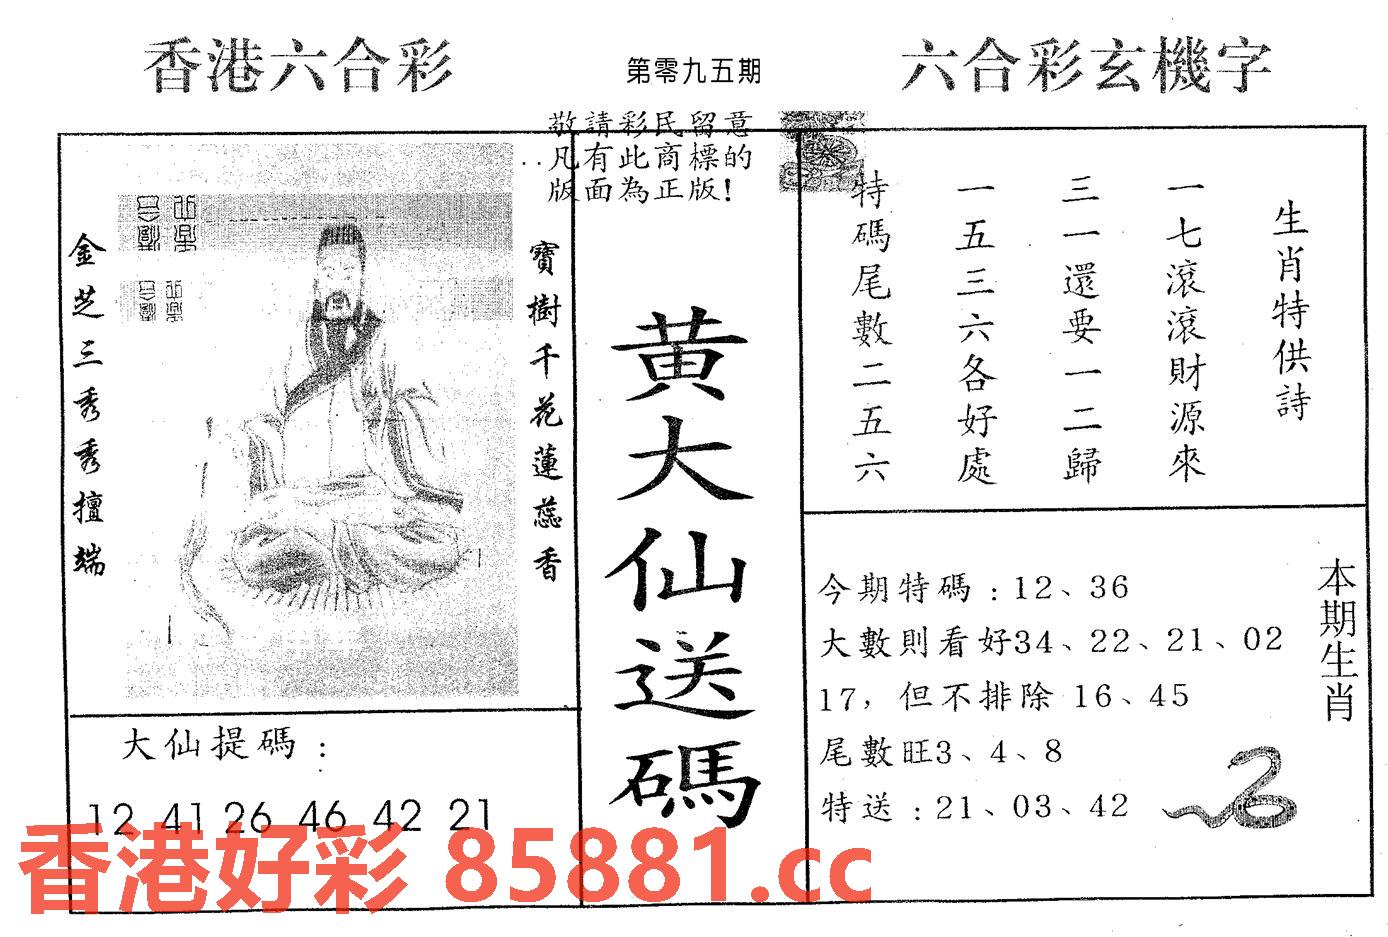 香港六合彩
第零九五期
六合彩玄機字
敬請彩民留意
凡有此商標的
版面為正版!
金芝三秀秀擅端
寶樹千花蓮蕊香
黄大仙送碼
生肖特供詩
一七滾滾財源來
三一還要一二歸
一五三六各好處
特碼尾數二五六
本期生肖
今期特碼：12、36
大數則看好34、22、21、02
17，但不排除 16、45
尾數旺3、4、8
特送：21、03、42
大仙提碼：
12 41 26 46 42 21
香港好彩 85881.cc